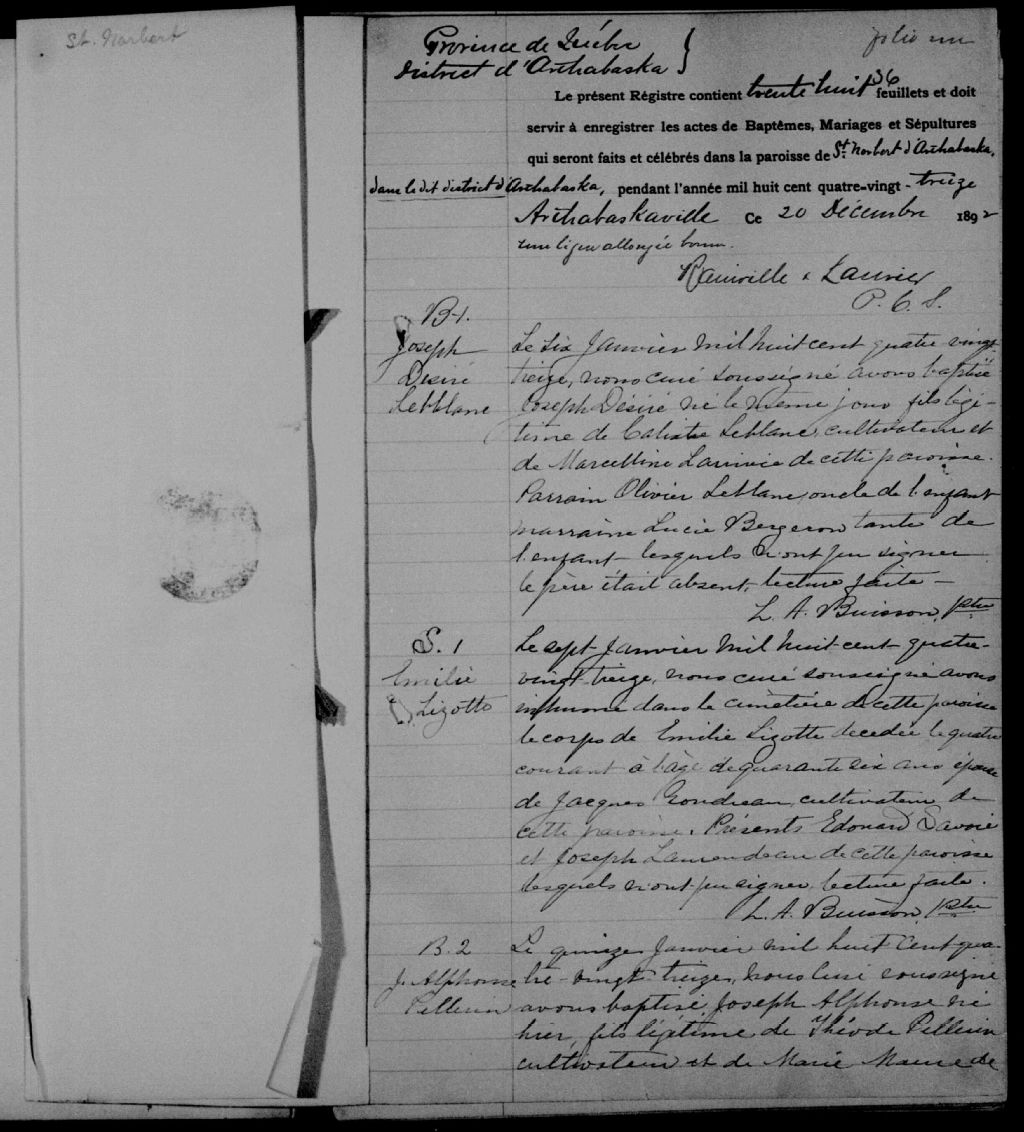 St. Norbert
folio un
Province de Québec
District d'Arthabaska
36
Le présent Régistre contient trente huit feuillets et doit
servir à enregistrer les actes de Baptêmes, Mariages et Sépultures
qui seront faits et célébrés dans la paroisse de St. Norbert d'Arthabaska,
dans le dit district d'Arthabaska, pendant l'année mil huit cent quatre-vingt-treize
Arthabaskaville Ce 20 Décembre 1892
une ligne allongée bonne.
Rainville & Laurier
P. C. S.
B-1.
Joseph
Désiré
Leblanc
Le six Janvier mil huit cent quatre vingt
treize, nous curé soussigné avons baptisé
Joseph Désiré né le même jour fils légi-
time de Calixte Leblanc, cultivateur et
de Marcelline Larivée de cette paroisse.
Parrain Olivier Leblanc, oncle de l'enfant
marraine Lucie Bergeron tante de
l'enfant lesquels n'ont pu signer
le père était absent, lecture faite -
L. A. Buisson, Ptre
S. 1
Emilie
Lizotte
Le sept Janvier mil huit cent quatre-
vingt treize, nous curé soussigné avons
inhumé dans le cimetière de cette paroisse
le corps de Emilie Lizotte décédée le quatre
courant à l'âge de quarante six ans épouse
de Jacques Goudreau, cultivateur de
cette paroisse. Présents Edouard Savoie
et Joseph Lamondeau de cette paroisse
lesquels n'ont pu signer, lecture faite.
L. A. Buisson, Ptre
B. 2
J. Alphonse
Pellerin
Le quinze Janvier mil huit cent qua-
tre-vingt-treize, nous curé soussigné
avons baptisé Joseph Alphonse né
hier, fils légitime de Théode Pellerin
cultivateur et de Marie de